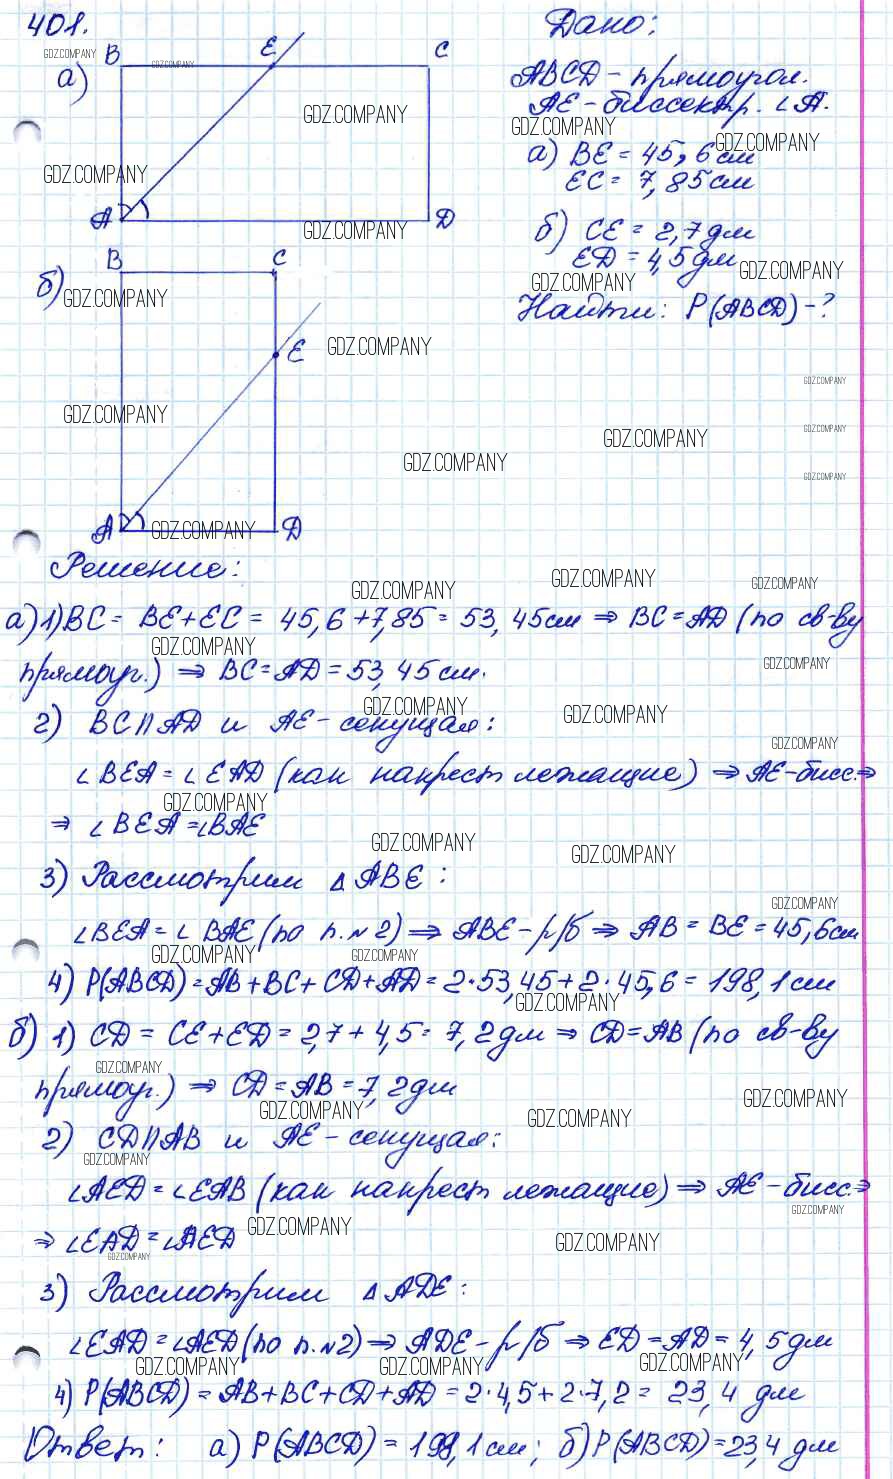 401.
а)
B E C
A D
Дано:
ABCD - прямоугол.
AE - биссектр. ∠A.
а) BE = 45,6 см
EC = 7,85 см
б) CE = 2,7 дм
ED = 4,5 дм
Найти: P(ABCD) - ?
б)
B C
E
A D
Решение:
а) 1) BC = BE + EC = 45,6 + 7,85 = 53,45 см ⇒ BC = AD (по св-ву
прямоуг.) ⇒ BC = AD = 53,45 см.
2) BC || AD и AE - секущая:
∠BEA = ∠EAD (как накрест лежащие) ⇒ AE - бисс. ⇒
⇒ ∠BEA = ∠BAE
3) Рассмотрим △ABE:
∠BEA = ∠BAE (по п.№2) ⇒ ABE - р/б ⇒ AB = BE = 45,6 см
4) P(ABCD) = AB + BC + CD + AD = 2·53,45 + 2·45,6 = 198,1 см
б) 1) CD = CE + ED = 2,7 + 4,5 = 7,2 дм ⇒ CD = AB (по св-ву
прямоуг.) ⇒ CD = AB = 7,2 дм
2) CD || AB и AE - секущая:
∠AED = ∠EAB (как накрест лежащие) ⇒ AE - бисс. ⇒
⇒ ∠EAD = ∠AED
3) Рассмотрим △ADE:
∠EAD = ∠AED (по п.№2) ⇒ ADE - р/б ⇒ ED = AD = 4,5 дм
4) P(ABCD) = AB + BC + CD + AD = 2·4,5 + 2·7,2 = 23,4 дм
Ответ: а) P(ABCD) = 198,1 см; б) P(ABCD) = 23,4 дм
GDZ.COMPANY